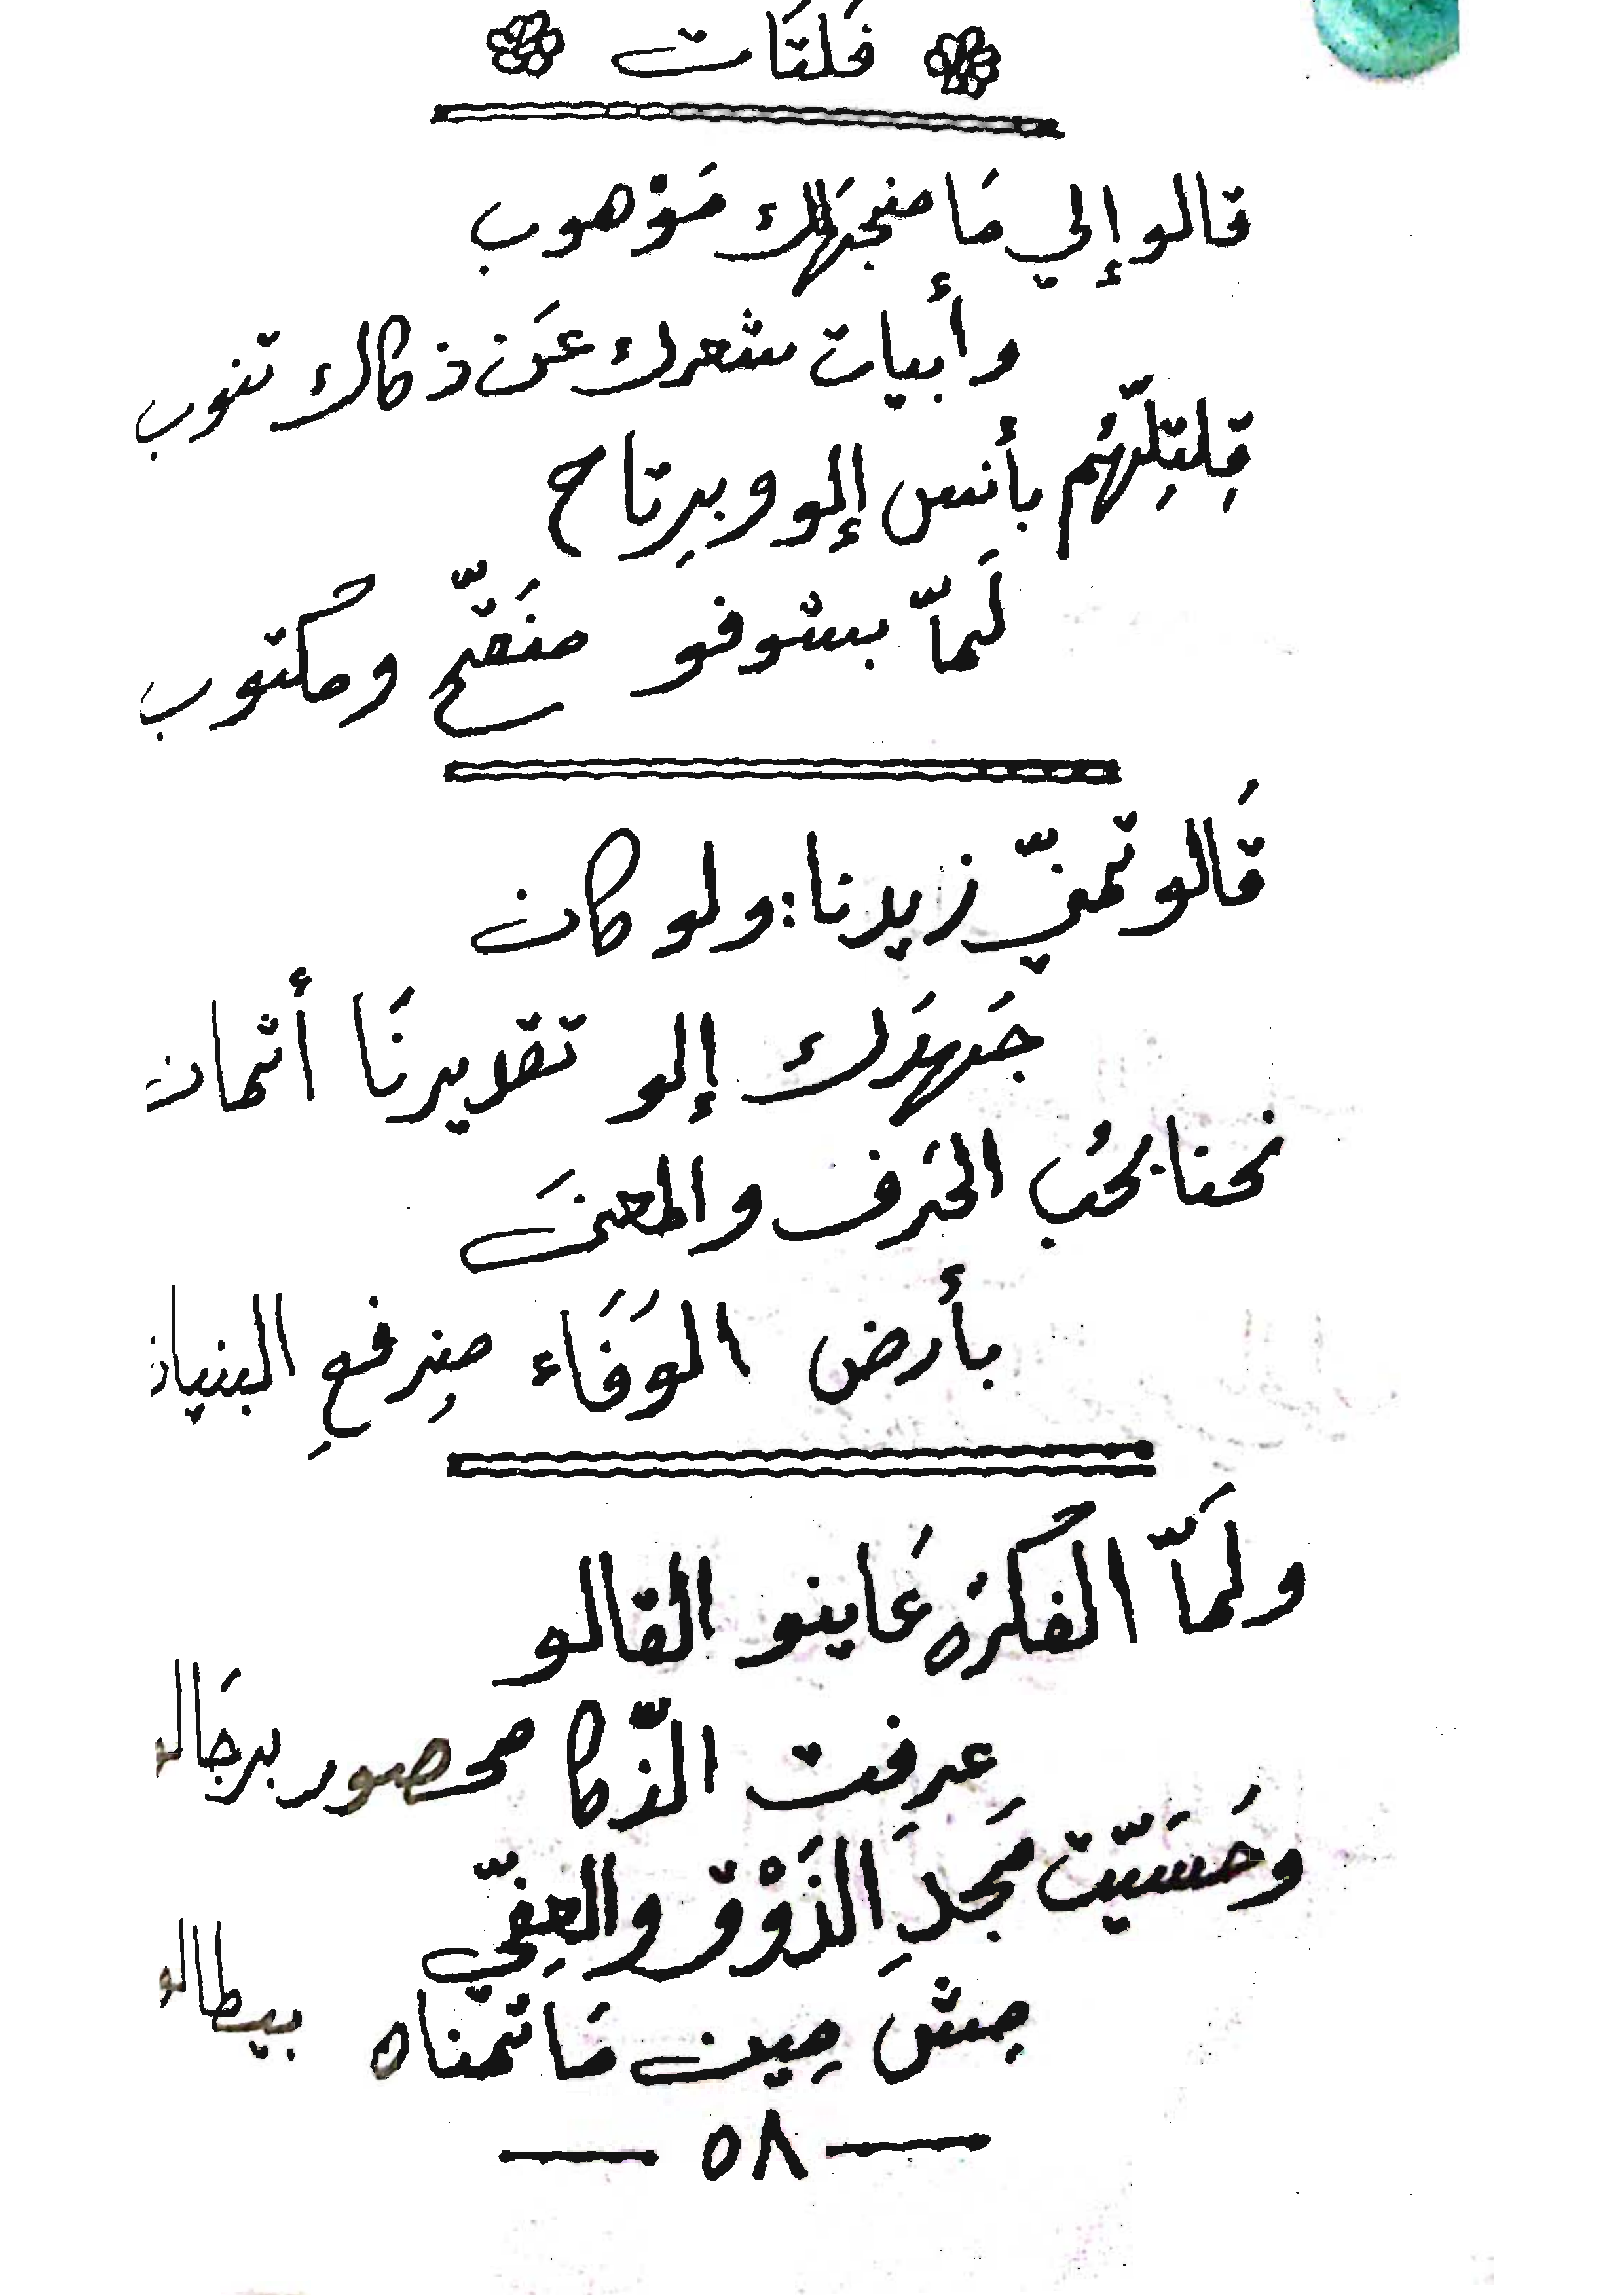 فَلتَات
قالو إلي مَا منجهَلك مَوْهوب
وأبيات شعرك عَن ذكاك تنوب
قِلتِلّهُم بأنس إلو وبرِتاح
لَمّا بشوفو منَقّح ومكتوب
قَالو تمنّي زيدنا: ولو كان
جَهدَك إلو تقديرنَا أثمان
نحنا بحُب الحَرف والمعنَى
بأرض الوَفَاء مِنرفعِ البنيان
ولَمّا الفكرَه عَاينو القالو
عرِفت الذّكا محصور برجَالو
وحَسَيّت مَجدِ الذَوْق والعِفّي
مِش مِين مَا تمناه بيطالو
— ٥٨ —